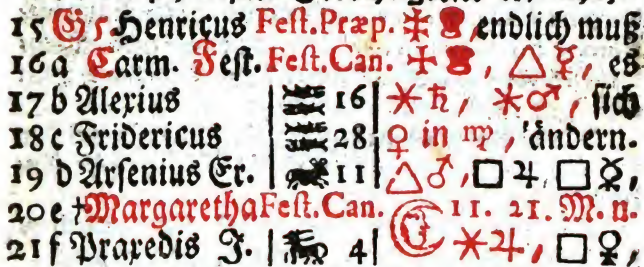 15 G 5 Henricus Fest. Præp. ✠ , endlich muß
16 a Carm. Fest. Fest. Can. ✠ , △ ☿, es
17 b Alexius | 16 | ✶ ♄, ✶ ♂, sich
18 c Fridericus | 28 | ♀ in ♍, ändern.
19 d Arsenius Er. | 11 | △ ♂, □ ♃, □ ☿,
20 e † Margaretha Fest. Can. ☾ 11. 21. M. n.
21 f Praxedis J. | 4 | ✶ ♃, □ ♀,